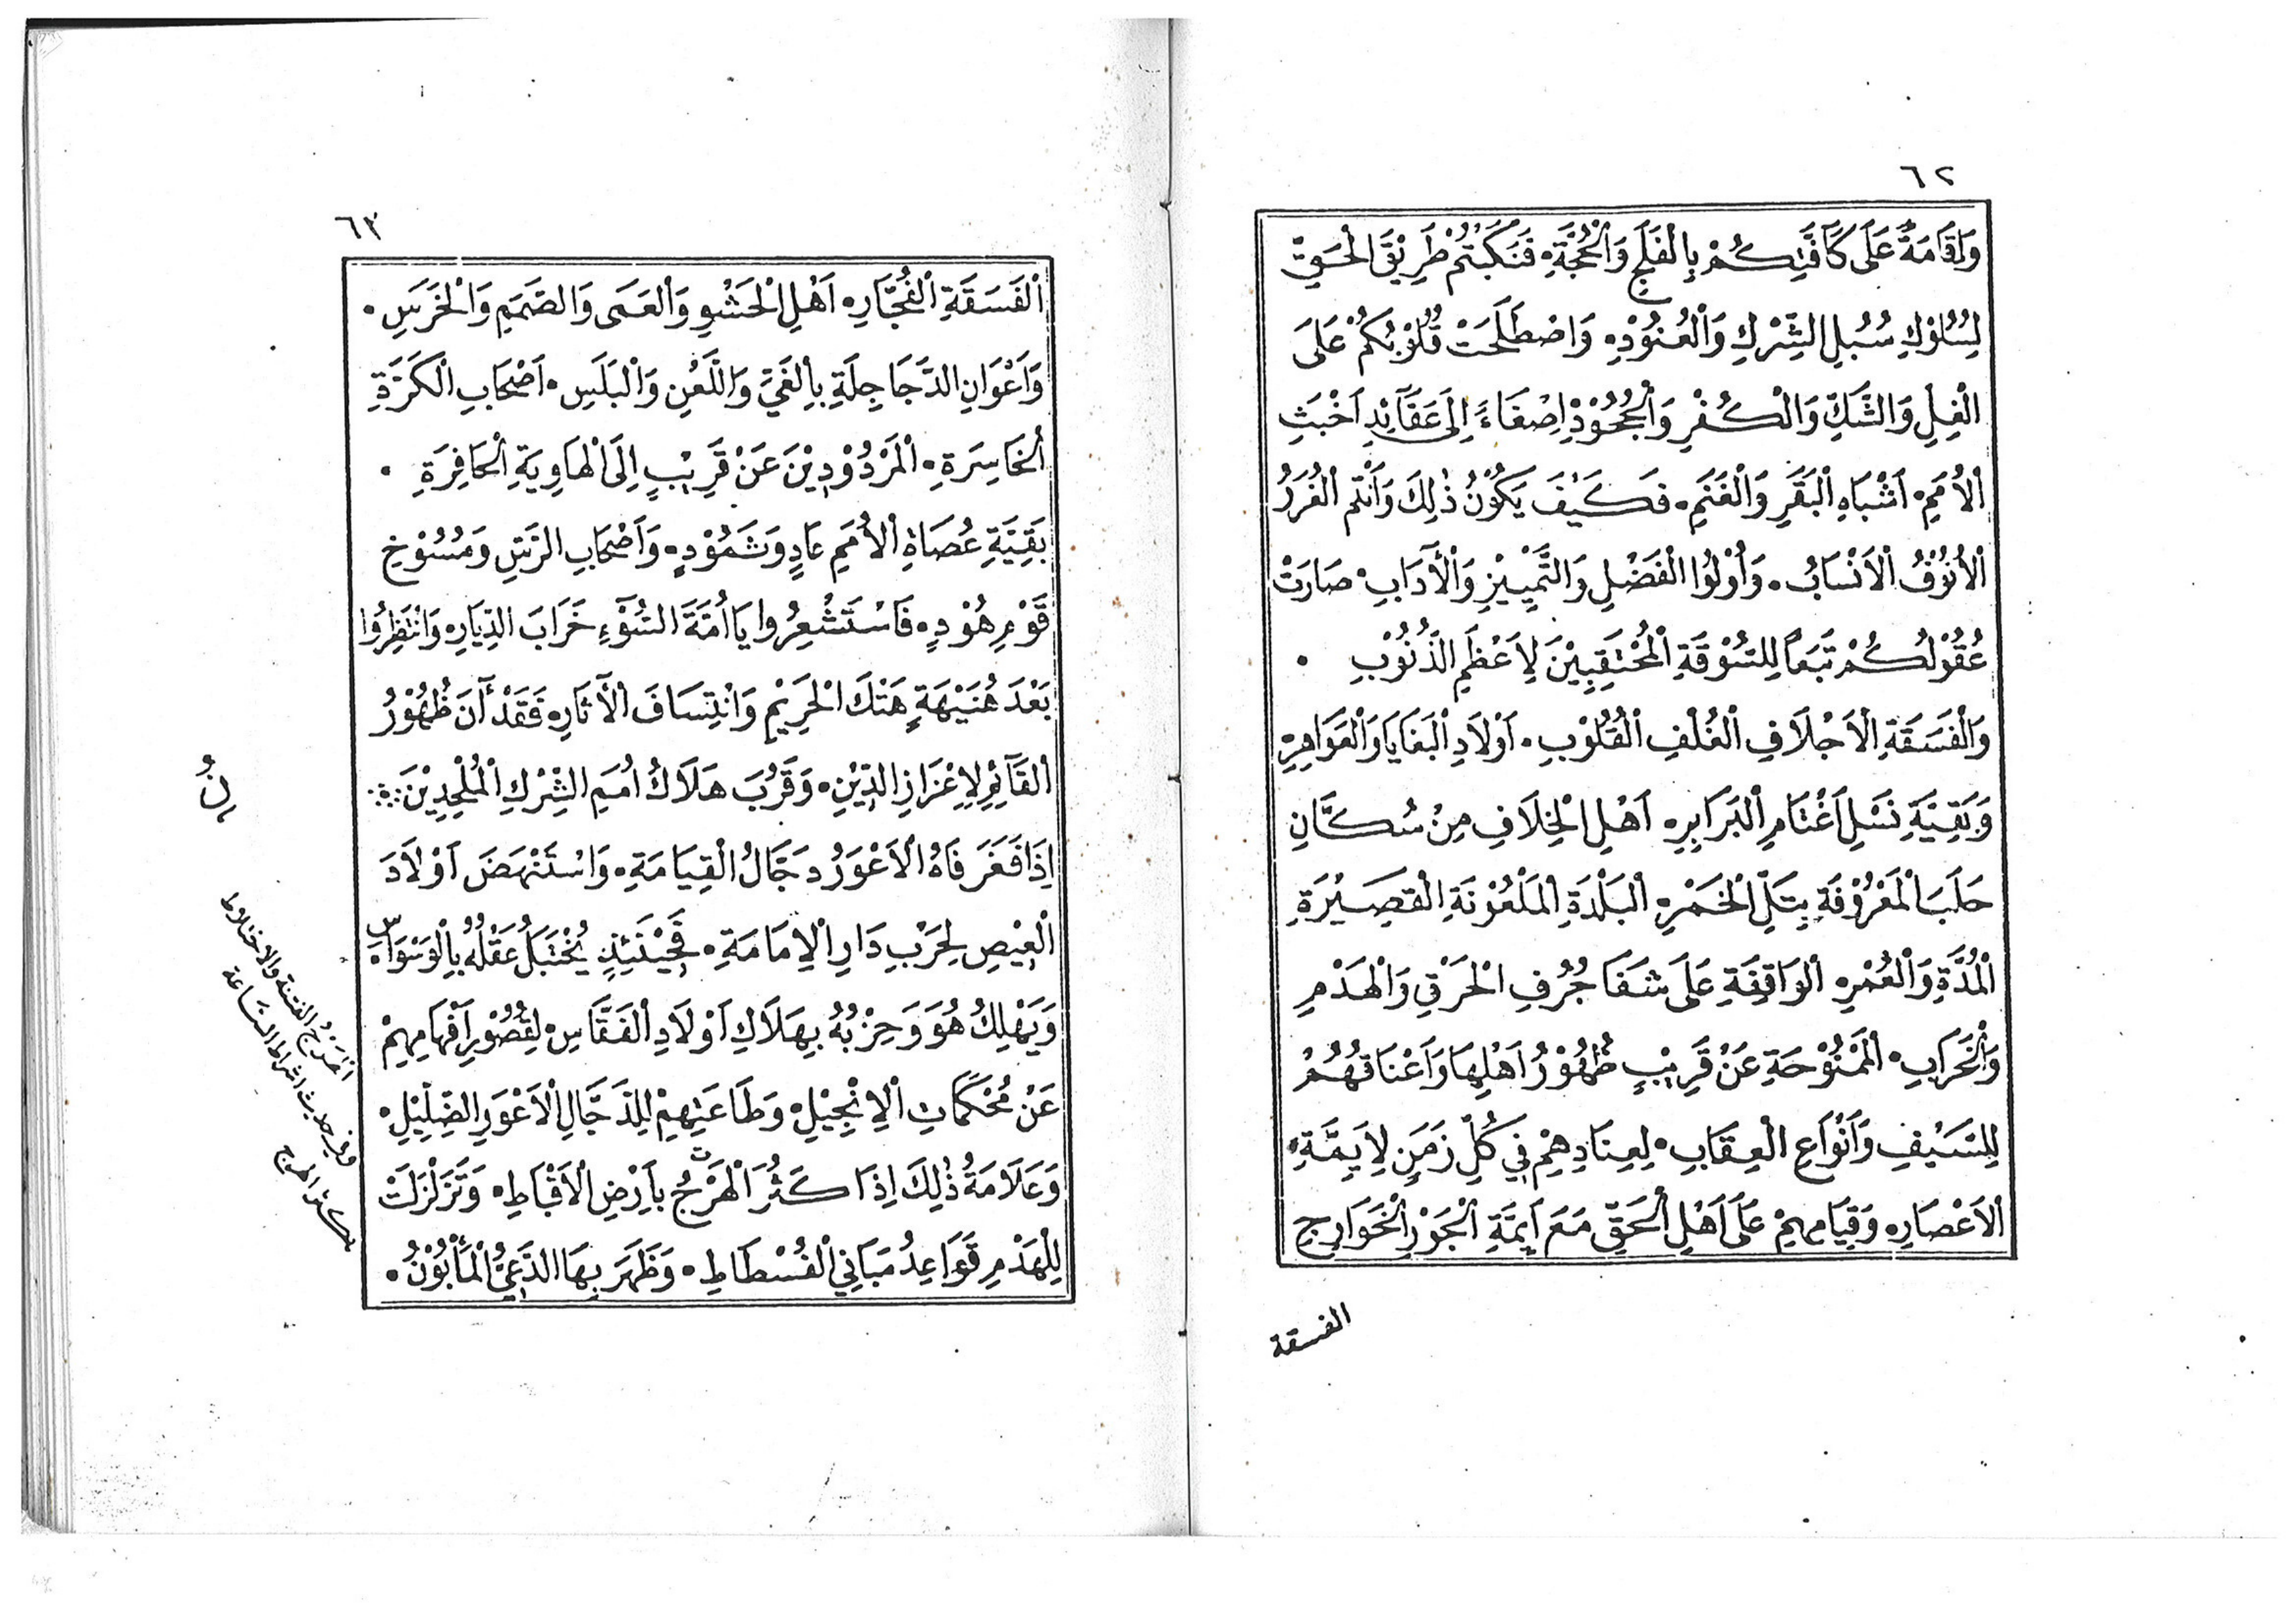 ٦٢
وَاِقَامَةً عَلَى كَآفَّتِكُمْ بِالْفَلَجِ وَالْحُجَّةِ • فَنَكَبْتُمْ طَرِيْقَ الْحَقِّ
لِسُلُوْكِ سُبُلِ الشِّرْكِ وَالْعُنُوْدِ • وَاصْطَلَحَتْ قُلُوْبُكُمْ عَلَى
الْغِلِ وَالشَّكِّ وَالْكُفْرِ وَالْجُحُوْدِ اِصْغَاءً اِلَى عَقَآئِدِ اَخْبَثِ
الْاُمَمِ • اَشْبَاهِ الْبَقَرِ وَالْغَنَمِ • فَكَيْفَ يَكُوْنُ ذٰلِكَ وَاَنْتُمُ الْغُرَرُ
الْاُنُوْفُ الْاَنْسَابُ • وَاُوْلُوا الْفَضْلِ وَالتَّمْيِيْزِ وَالْآدَابِ • صَارَتْ
عُقُوْلُكُمْ تَبَعاً لِلسُّوْقَةِ الْمُحْتَقِبِيْنَ لِاَعْظَمِ الذُّنُوْبِ •
وَالْفَسَقَةِ الْاَجْلَافِ الْغُلْفِ الْقُلُوْبِ • اَوْلَادِ الْبَغَايَا وَالْعَوَاهِرِ •
وَبَقِيَّةِ نَسْلِ اَغْتَامِ الْبَرَابِرِ • اَهْلِ الْخِلَافِ مِنْ سُكَّانِ
حَلَبَ الْمَعْرُوْفَةِ بِتَلِّ الْخَمْرِ • الْبَلْدَةِ الْمَلْعُوْنَةِ الْقَصِيْرَةِ
الْمُدَّةِ وَالْعُمْرِ • الْوَاقِفَةِ عَلَى شَفَا جُرُفِ الْحَرْقِ وَالْهَدْمِ
وَالْخَرَابِ • الْمَمْنُوْحَةِ عَنْ قَرِيْبٍ ظُهُوْرُ اَهْلِهَا وَاَعْنَاقُهُمْ
لِلسَّيْفِ وَاَنْوَاعِ الْعِقَابِ • لِعِنَادِهِمْ فِي كُلِّ زَمَنٍ لِاَيِمَّةِ •
الْاَعْصَارِ • وَقِيَامِهِمْ عَلَى اَهْلِ الْحَقِّ مَعَ اَيِمَّةِ الْجَوْرِ الْخَوَارِجِ
الفسقة
٦٣
الْفَسَقَةِ الْفُجَّارِ • اَهْلِ الْحَشْوِ وَالْعَمَى وَالصَّمَمِ وَالْخَرَسِ •
وَاَعْوَانِ الدَّجَاجِلَةِ بِالْغَيِّ وَاللَّعْنِ وَالْبَلَسِ • اَصْحَابِ الْكَرَّةِ
الْخَاسِرَةِ • الْمَرْدُوْدِيْنَ عَنْ قَرِيْبٍ اِلَى الْهَاوِيَةِ الْحَافِرَةِ •
بَقِيَّةِ عُصَاةِ الْاُمَمِ عَادٍ وَثَمُوْدٍ • وَاَصْحَابِ الرَّسِّ وَمُسُوْخِ
قَوْمِ هُوْدٍ • فَاسْتَشْعِرُوا يَا اُمَّةَ السُّوْءِ خَرَابَ الدِّيَارِ • وَانْتَظِرُوا
بَعْدَ هُنَيْهَةٍ هَتْكَ الْحَرِيْمِ وَانْتِسَافَ الْآثَارِ • فَقَدْ آنَ ظُهُوْرُ
الْقَآئِمِ لِاِعْزَازِ الدِّيْنِ • وَقَرُبَ هَلَاكُ اُمَمِ الشِّرْكِ الْمُلْحِدِيْنَ ∴
اِذَا فَغَرَ فَاهُ الْاَعْوَرُ دَجَّالُ الْقِيَامَةِ • وَاسْتَنْهَضَ اَوْلَادَ
الْعِيْصِ لِحَرْبِ دَارِ الْاِمَامَةِ • فَحِيْنَئِذٍ يُخْتَبَلُ عَقْلُهُ بِالْوَسْوَاسِ •
وَيَهْلِكُ هُوَ وَحِزْبُهُ بِهَلَاكِ اَوْلَادِ الْفَقَّاسِ • لِقُصُوْرِ اَفْهَامِهِمْ
عَنْ مُحْكَمَاتِ الْاِنْجِيْلِ • وَطَاعَتِهِمْ لِلدَّجَّالِ الْاَعْوَرِ الضِّلِيْلِ •
وَعَلَامَةُ ذٰلِكَ اِذَا كَثُرَ الْهَرْجُ بِاَرْضِ الْاَقْبَاطِ • وَتَزَلْزَلَتْ
لِلْهَدْمِ قَوَاعِدُ مَبَانِي الْفُسْطَاطِ • وَظَهَرَ بِهَا الدَّعِيُّ الْمَأْبُوْنُ •
الهَرْجُ الفتنة والاختلاط
وفي حديث اشراط السَّاعة
يكثر الهرج